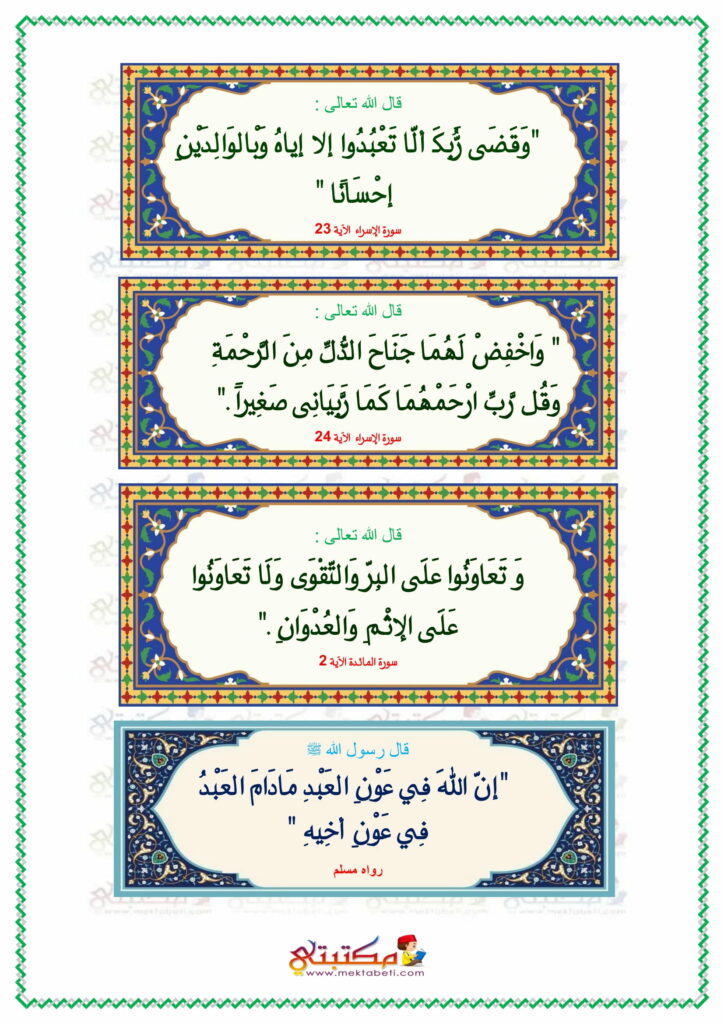 قال الله تعالى :
"وَقَضَى رَّبُكَ ألّا تَعْبُدُوا إلا إياهُ وَبْالوَالِدَيْنِ
إحْسَانًا "
سورة الإسراء الآية 23
قال الله تعالى :
" وَاخْفِضْ لَهُمَا جَنَاحَ الذُّلِّ مِنَ الرَّحْمَةِ
وَقُل رَّبِّ ارْحَمْهُمَا كَمَا رَّبَيَانِى صَغِيراً."
سورة الإسراء الآية 24
قال الله تعالى :
وَ تَعَاوَنُوا عَلَى البِرّ وَالتَّقْوَى وَلَا تَعَاوَنُوا
عَلَى الإثْمِ وَالعُدْوَانِ ."
سورة المائدة الآية 2
قال رسول الله ﷺ
"إنّ اللهَ فِي عَوْنِ العَبْدِ مَادَامَ العَبْدُ
فِي عَوْنِ أخِيهِ "
رواه مسلم
مكتبتي
www.mektabeti.com